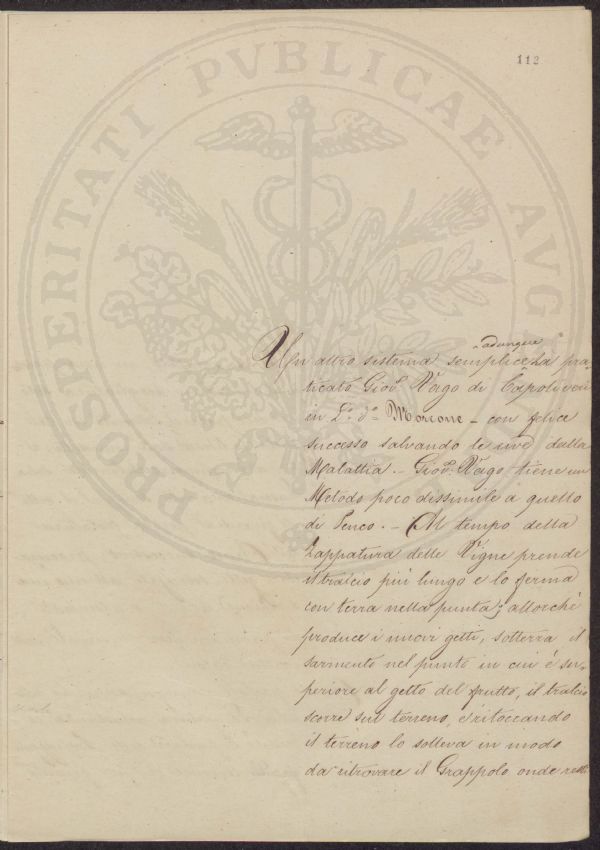 112
PROSPERITATI PVBLICAE AVG
adunque
Un altro sistema semplice ha pra-
ticato Giov. Vago di Capoliveri
in L. d. Morcone - con felice
successo salvando le uve dalla
Malattia. - Giov. Vago tiene un
Metodo poco dissimile a quello
di Penco. - Al tempo della
Zappatura delle Vigne prende
il tralcio più lungo e lo ferma
con terra nella punta; allorchè
produce i nuovi getti, sotterra il
sarmento nel punto in cui è su-
periore al getto del frutto, il tralcio
scorre sul terreno, e ritoccando
il terreno lo solleva in modo
da ritrovare il Grappolo onde resti